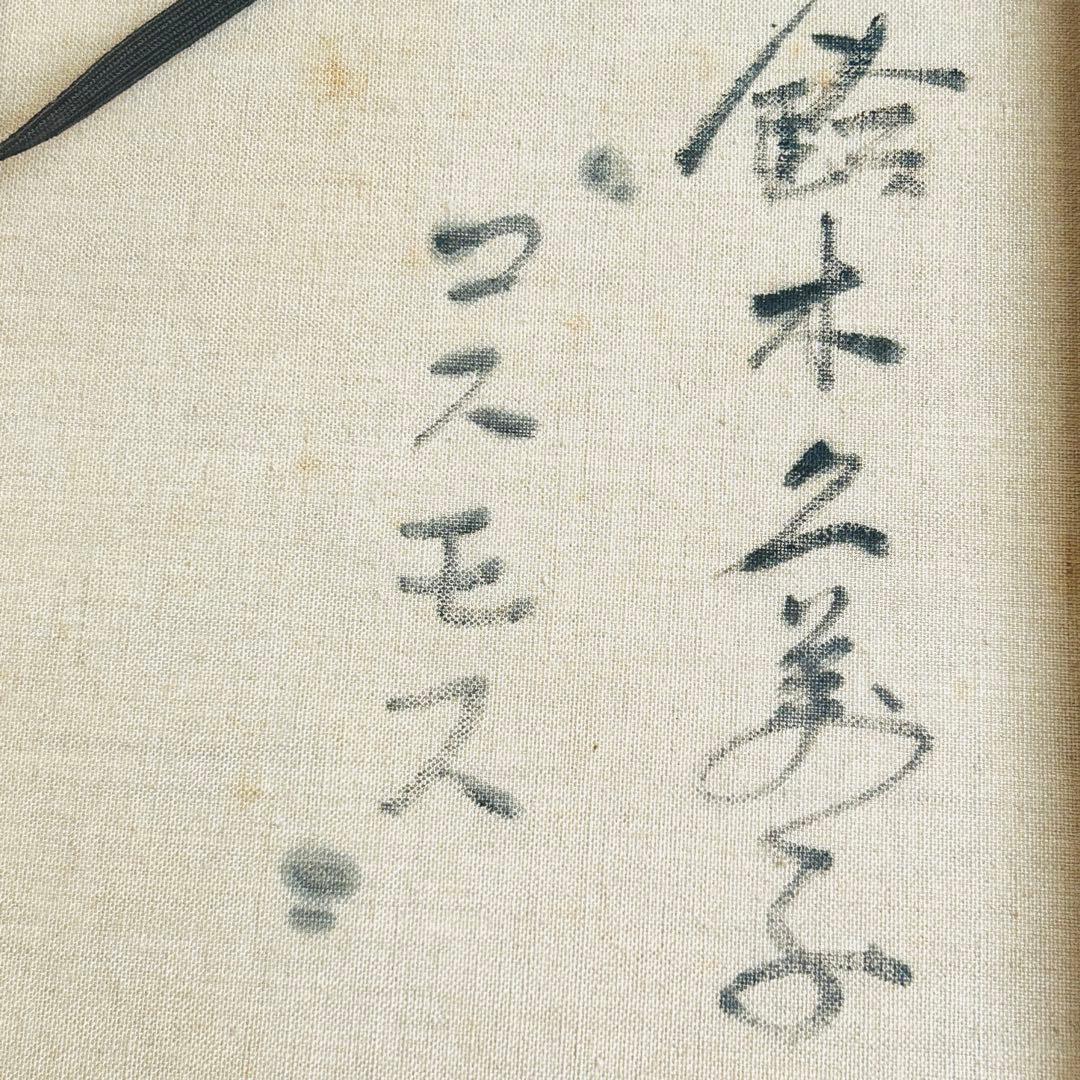 鈴木久美子
コスモス